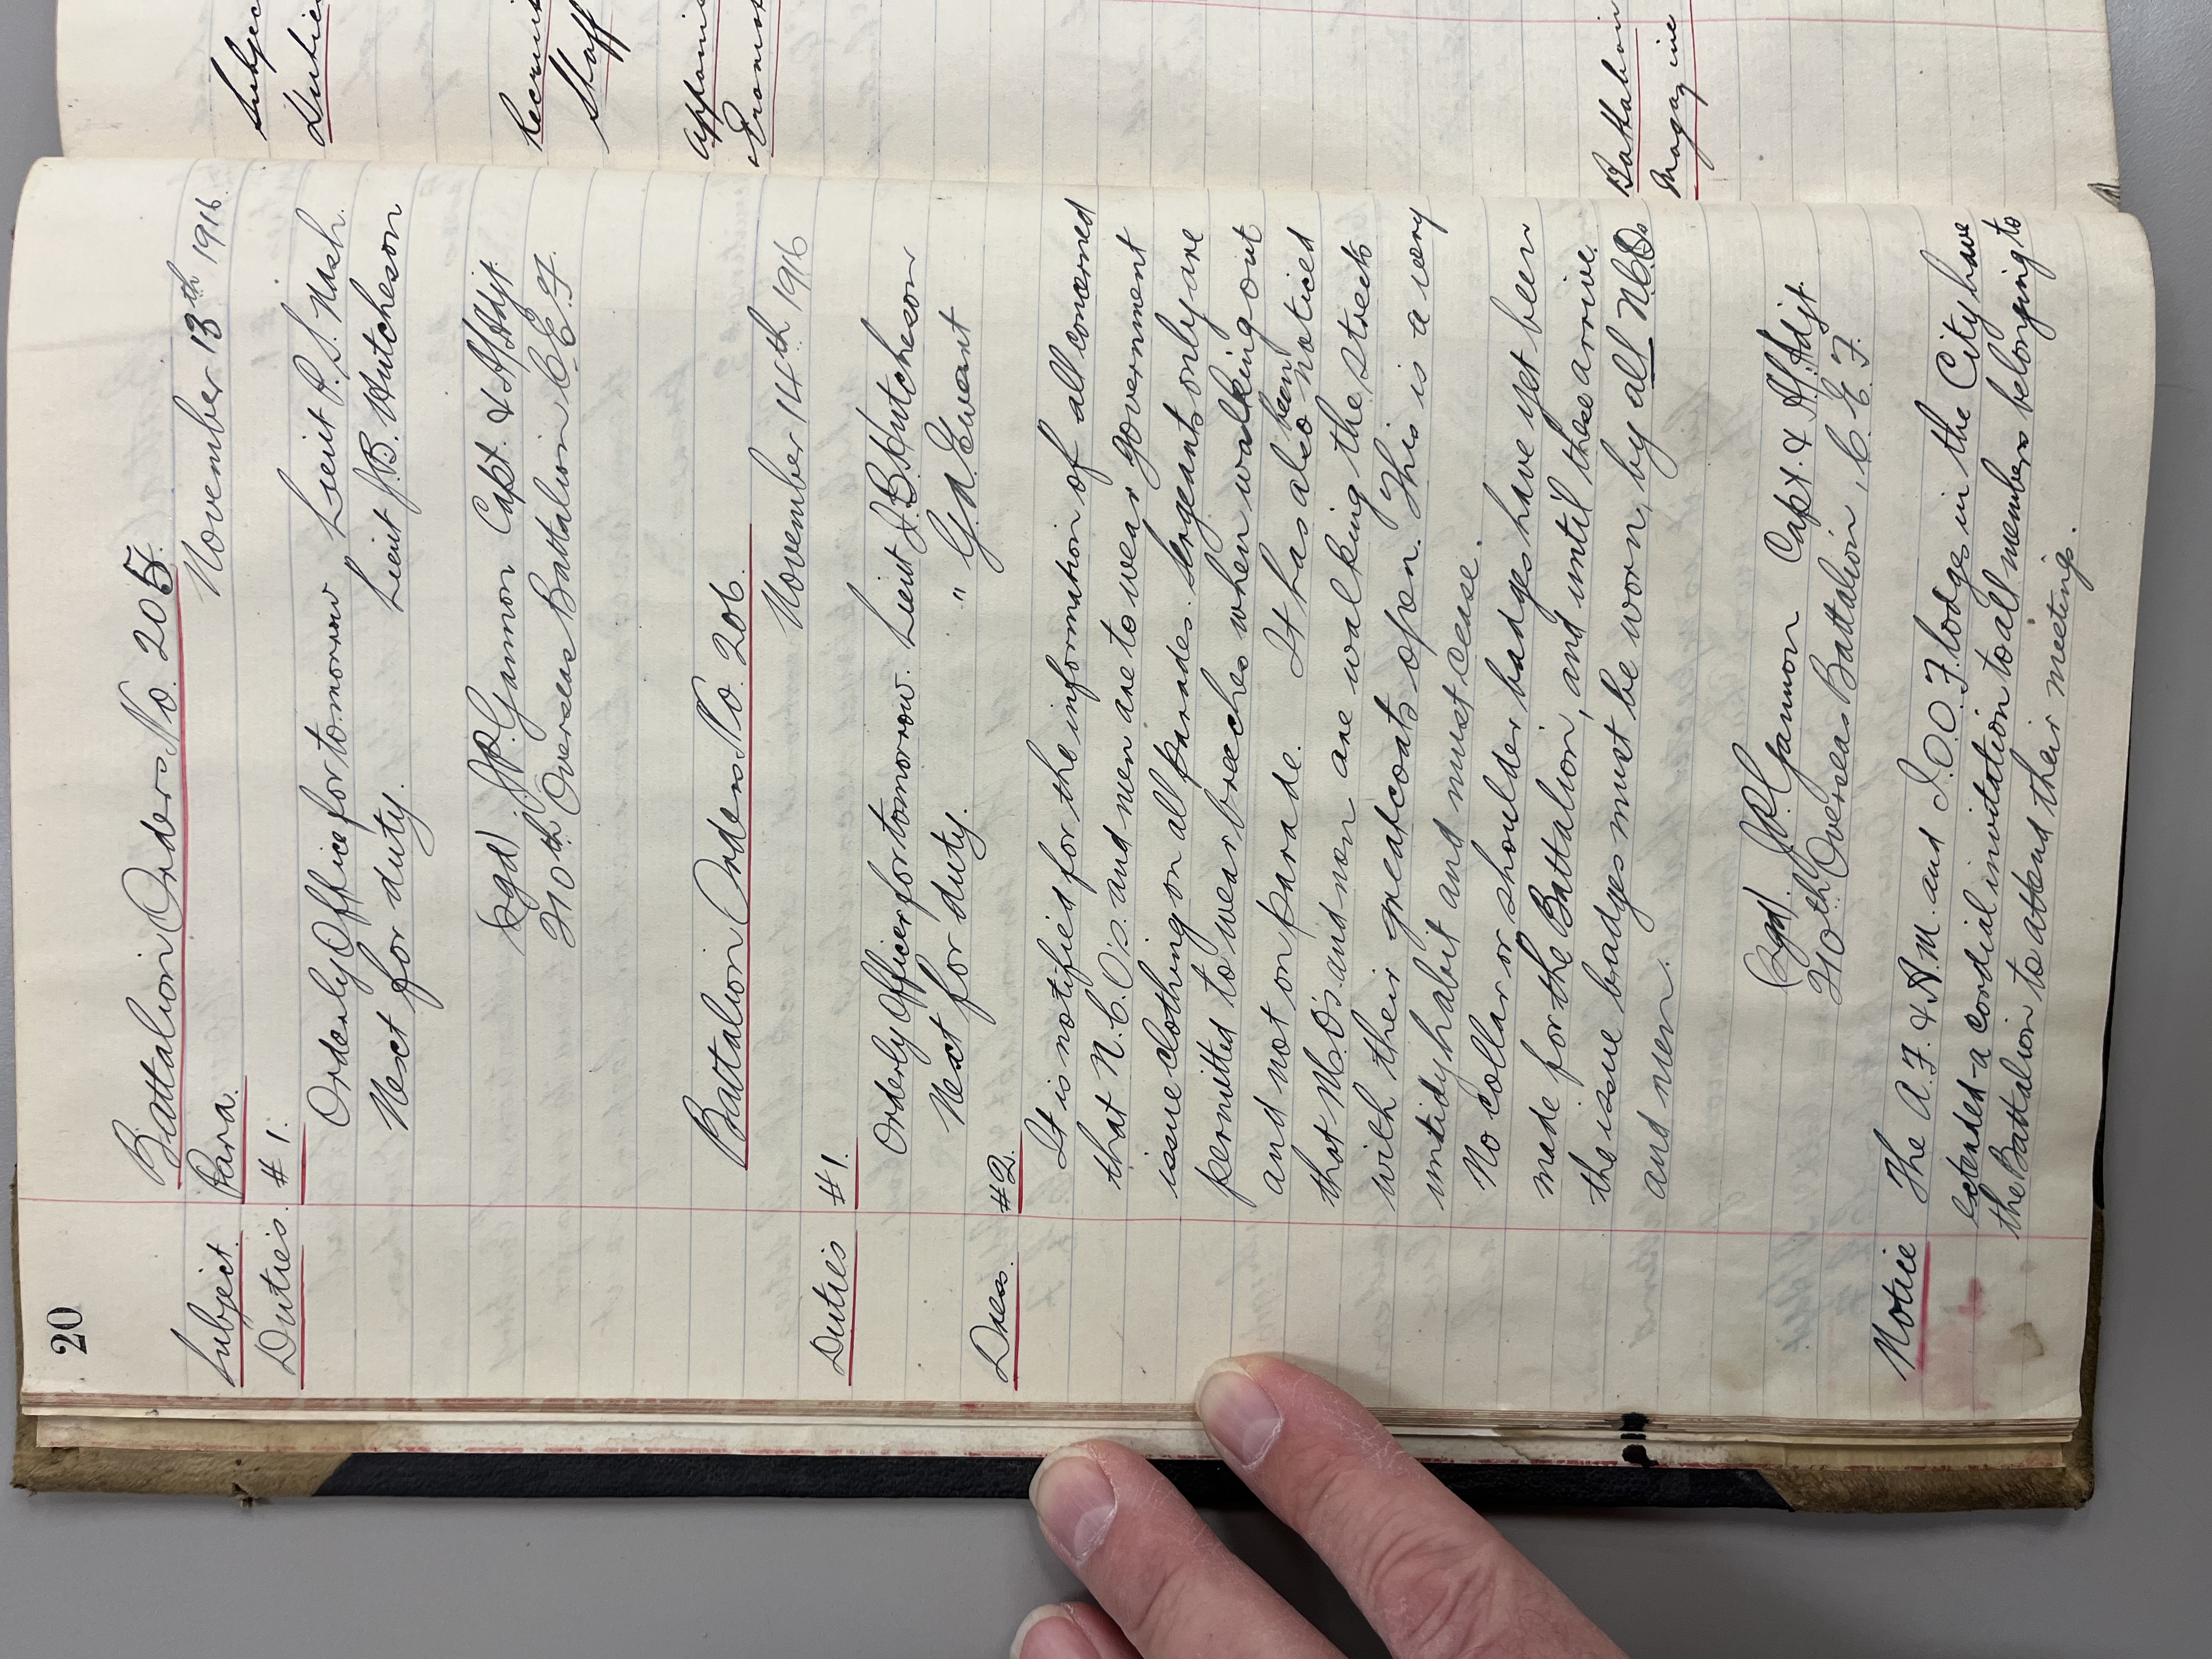 20
Battalion Orders No. 205.
Subject. Para. November 13th 1916.
Duties. # 1.
Orderly Officer for tomorrow Lieut R. S. Nash.
Next for duty. Lieut J.B. Hutcheson
(Sgd) J.P. Gamon Capt. & A/Adjt.
210th Overseas Battalion C.E.F.
Battalion Orders No. 206.
November 14th 1916
Duties #1.
Orderly Officer for tomorrow. Lieut J.B. Hutcheson
Next for duty. " G.A. Ewent
Dress. #2.
It is notified for the information of all concerned
that N.C.O's. and men are to wear government
issue clothing on all parades. Sergeants only are
permitted to wear breeches when walking out
and not on parade. It has also been noticed
that N.C.O's. and men are walking the streets
with their greatcoats open. This is a very
untidy habit and must cease.
No collar or shoulder badges have yet been
made for the Battalion, and until these arrive.
the issue badges must be worn, by all N.C.Os
and men.
(Sgd). J.P. Gamon Capt. & A/Adjt.
210th Overseas Battalion, C.E.F.
Notice The A.F. & A.M. and I.O.O.F. lodges in the City have
extended a cordial invitation to all members belonging to
the Battalion to attend their meetings.
Subjec
Dutie
Recruit
Staff
Battalion
Magazine